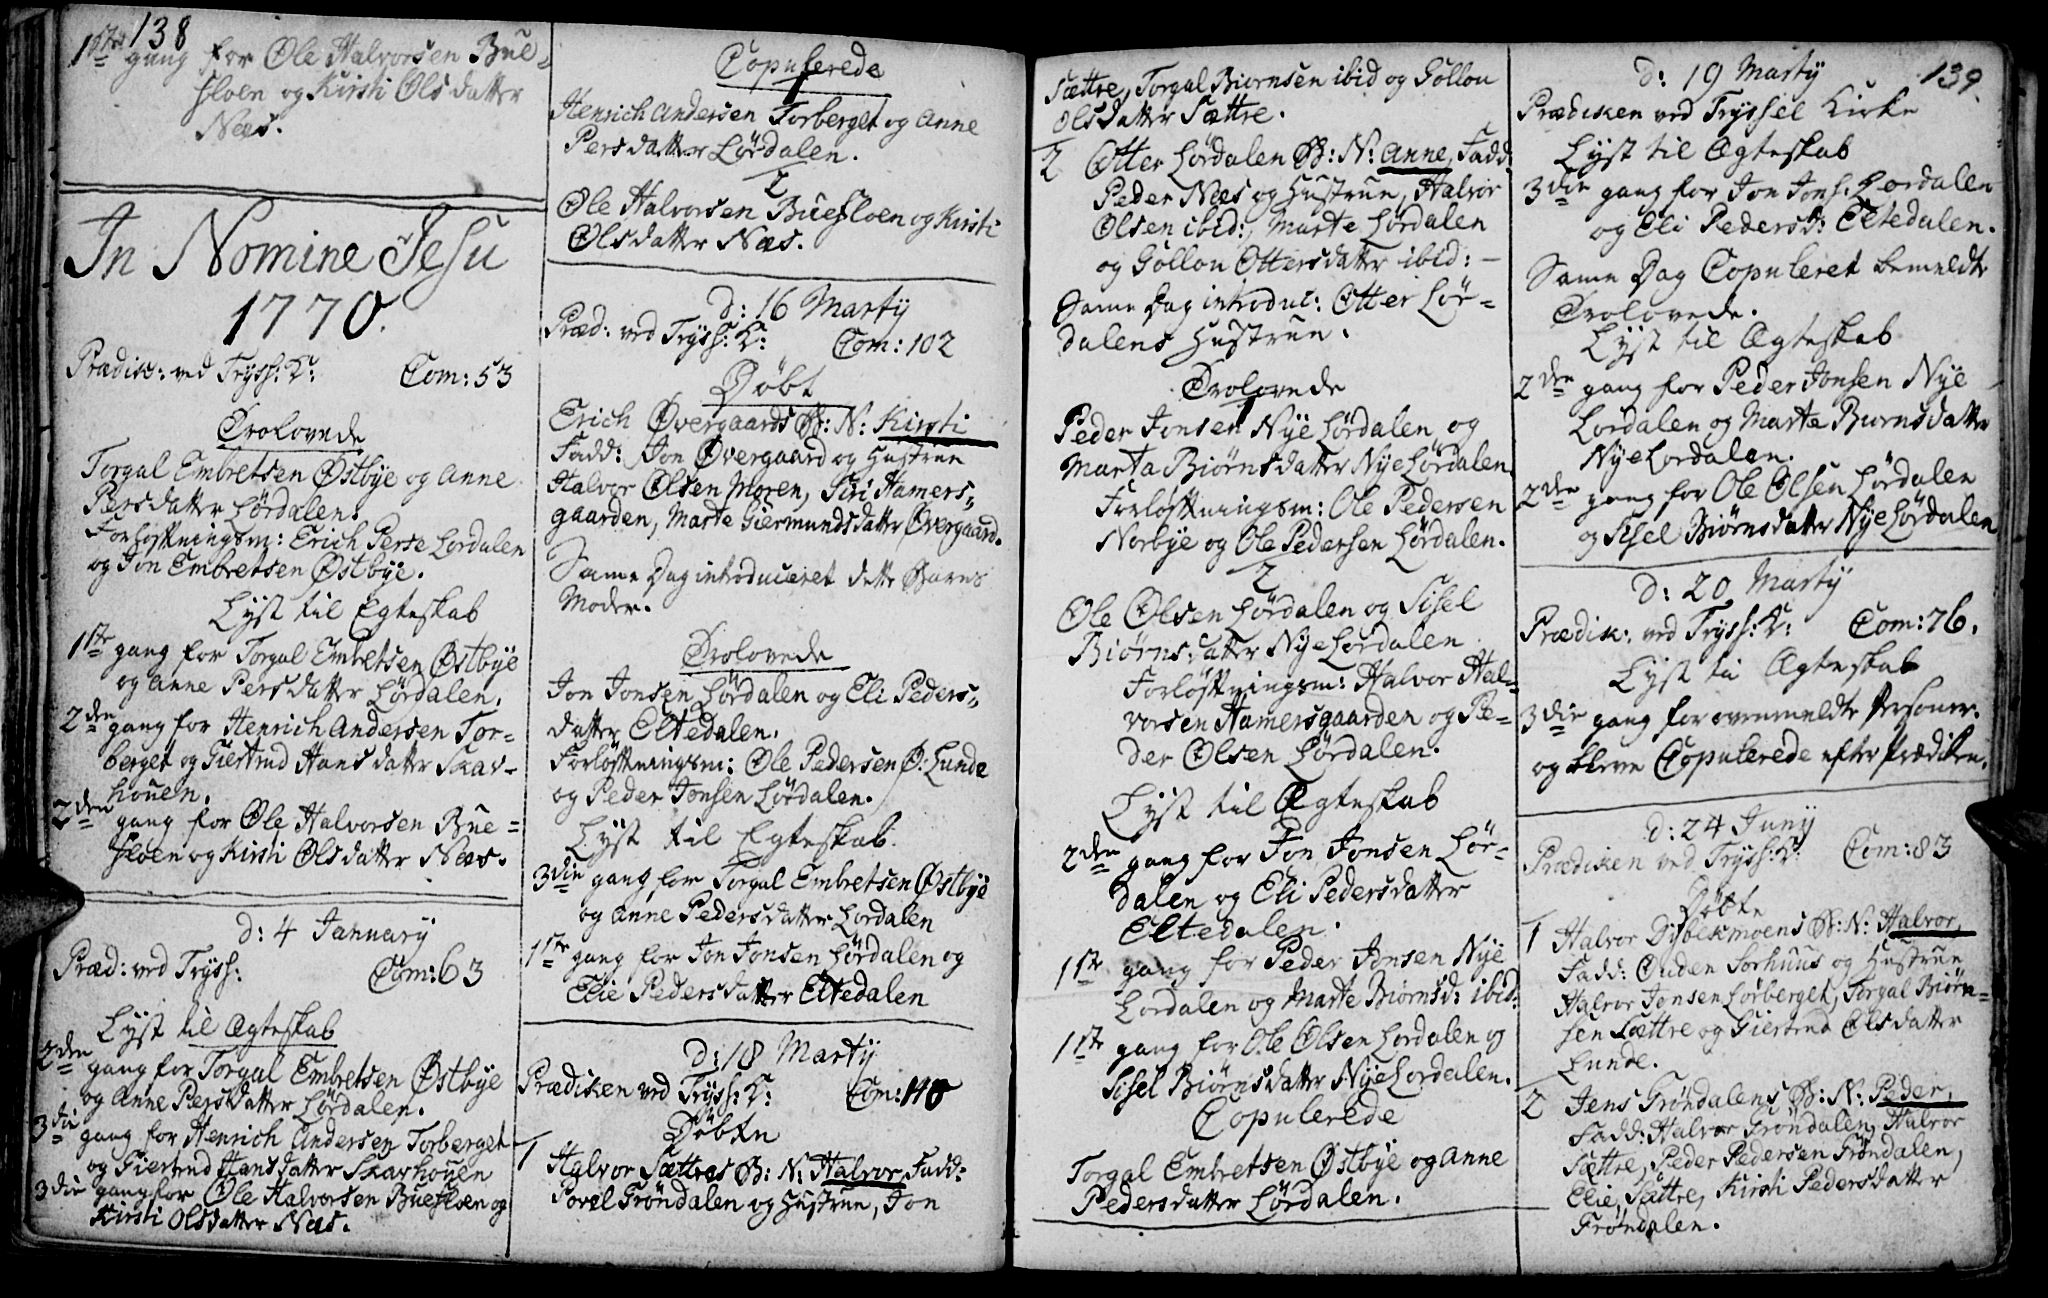 138
1ste gang for Ole Halvorsen Bue-
floen og Kirsti Olsdatter
Næs.
In Nomine Jesu
1770.
Prædik: ved Tryss: K: Com: 53
Trolovede
Torgal Embretsen Østbye og Anne
Persdatter Lørdalen.
Forløftningsm: Erich Perse Lørdalen
og Jon Embretsen Østbye.
Lyst til Egteskab
1ste gang for Torgal Embretsen Østbye
og Anne Persdatter Lørdalen.
2den gang for Henrich Andersen Tor-
berget og Giertrud Hansdatter Skav-
houen.
2den gang for Ole Halvorsen Bue-
floen og Kirsti Olsdatter Næs.
d: 4 January
Præd: ved Tryss: Com: 63
Lyst til Ægteskab
2den gang for Torgal Embretsen Østbye
og Anne Persdatter Lørdalen.
3die gang for Henrich Andersen Torberget
og Giertrud Hansdatter Skavhouen
3die gang for Ole Halvorsen Buefloen og
Kirsti Olsdatter Næs.
Copulerede
1
Henrich Andersen Torberget og Anne
Persdatter Lørdalen.
2
Ole Halvorsen Buefloen og Kirsti
Olsdatter Næs.
d: 16 Marty
Præd: ved Tryss: K: Com: 102
Døbt
Erich Øvergaards B: N: Kirsti
Fadd: Jon Øvergaard og Hustrue
Halvor Olsen Moren, Siri Hamers-
gaarden, Marte Giermundsdatter Øvergaard.
Same Dag introduceret dette Barns
Moder.
Trolovede
Jon Jonsen Lørdalen og Eli Peders-
datter Eltedalen.
Forløftningsm: Ole Pedersen Ø: Lunde
og Peder Jonsen Lørdalen.
Lyst til Egteskab.
3die gang for Torgal Embretsen Østbye
og Anne Pedersdatter Lørdalen
1ste gang for Jon Jonsen Lørdalen og
Elie Pedersdatter Eltedalen
D: 18 Marty
Prædiken ved Tryss: K: Com: 110
Døbte
1 Halvor Sættres B: N: Halvor, Fadd:
Povel Grøndalen og Hustrue, Jon
Sættre, Torgal Biørnsen ibid og Gollou
Olsdatter Sættre.
2 Otter Lørdalen B: N: Anne, Fadd:
Peder Næs og Hustrue, Halvor
Olsen ibid:, Marte Lørdalen
og Gollou Ottersdatter ibid:
Same Dag introduc: Otter Lør-
dalens Hustrue.
Trolovede
1
Peder Jonsen Nye Lørdalen og
Marta Biørnsdatter Nye Lørdalen
Forløftningsm: Ole Pedersen
Norbye og Ole Pedersen Lørdalen.
2
Ole Olsen Lørdalen og Sisel
Biørnsdatter Nye Lørdalen
Forløftningsm: Halvor Hal-
vorsen Hamersgaarden og Pe-
der Olsen Lørdalen.
Lyst til Ægteskab
2den gang for Jon Jonsen Lør-
dalen og Eli Pedersdatter
Eltedalen.
1ste gang for Peder Jonsen Nye
Lørdalen og Marte Biørnsd: ibid:
1ste gang for Ole Olsen Lørdalen og
Sisel Biørnsdatter Nye Lørdalen.
Copulerede
Torgal Embretsen Østbye og Anne
Pedersdatter Lørdalen.
139
d: 19 Marty
Prædiken ved Tryssel Kirke
Lyst til Ægteskab
3die gang for Jon Jons: Lørdalen
og Eli Pedersd: Eltedalen.
Same Dag Copuleret bemeldte
Trolovede.
Lyst til Ægteskab
2den gang for Peder Jonsen Nye
Lørdalen og Marta Biørnsdatter
Nye Lørdalen.
2den gang for Ole Olsen Lørdalen
og Sisel Biørnsdatter Nye Lørdalen
d: 20 Marty
Prædik: ved Tryss: K: Com: 76.
Lyst til Ægteskab
3die gang for ovenmeldte Personer.
og bleve Copulerede efter Prædiken.
d: 24 Juny
Prædiken ved Tryss: K: Com: 83
Døbte
1 Halvor Dybekmoens B: N: Halvor,
Fadd: Ouden Sorhuus og Hustrue
Halvor Jonsen Lørberget, Torgal Biørn-
sen Sættre og Giertrud Olsdatter
Lunde.
2 Jens Grøndalens B: N: Peder,
Fadd: Halvor Grøndalen, Halvor
Sættre, Peder Pedersen Grøndalen,
Elie Sættre, Kirsti Pedersdatter
Grøndalen.